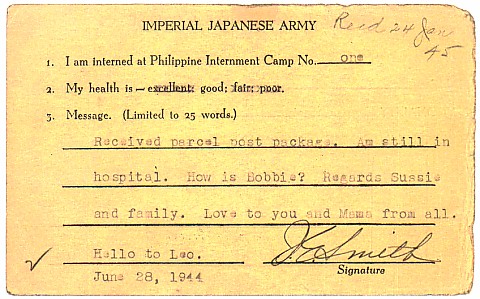 IMPERIAL JAPANESE ARMY
Recd 24 Jan
45
1. I am interned at Philippine Internment Camp No. one
2. My health is — excellent; good; fair; poor.
3. Message. (Limited to 25 words.)
Received parcel post package. Am still in
hospital. How is Bobbie? Regards Sussie
and family. Love to you and Mama from all.
Hello to Leo.
J.E. Smith
June 28, 1944
Signature